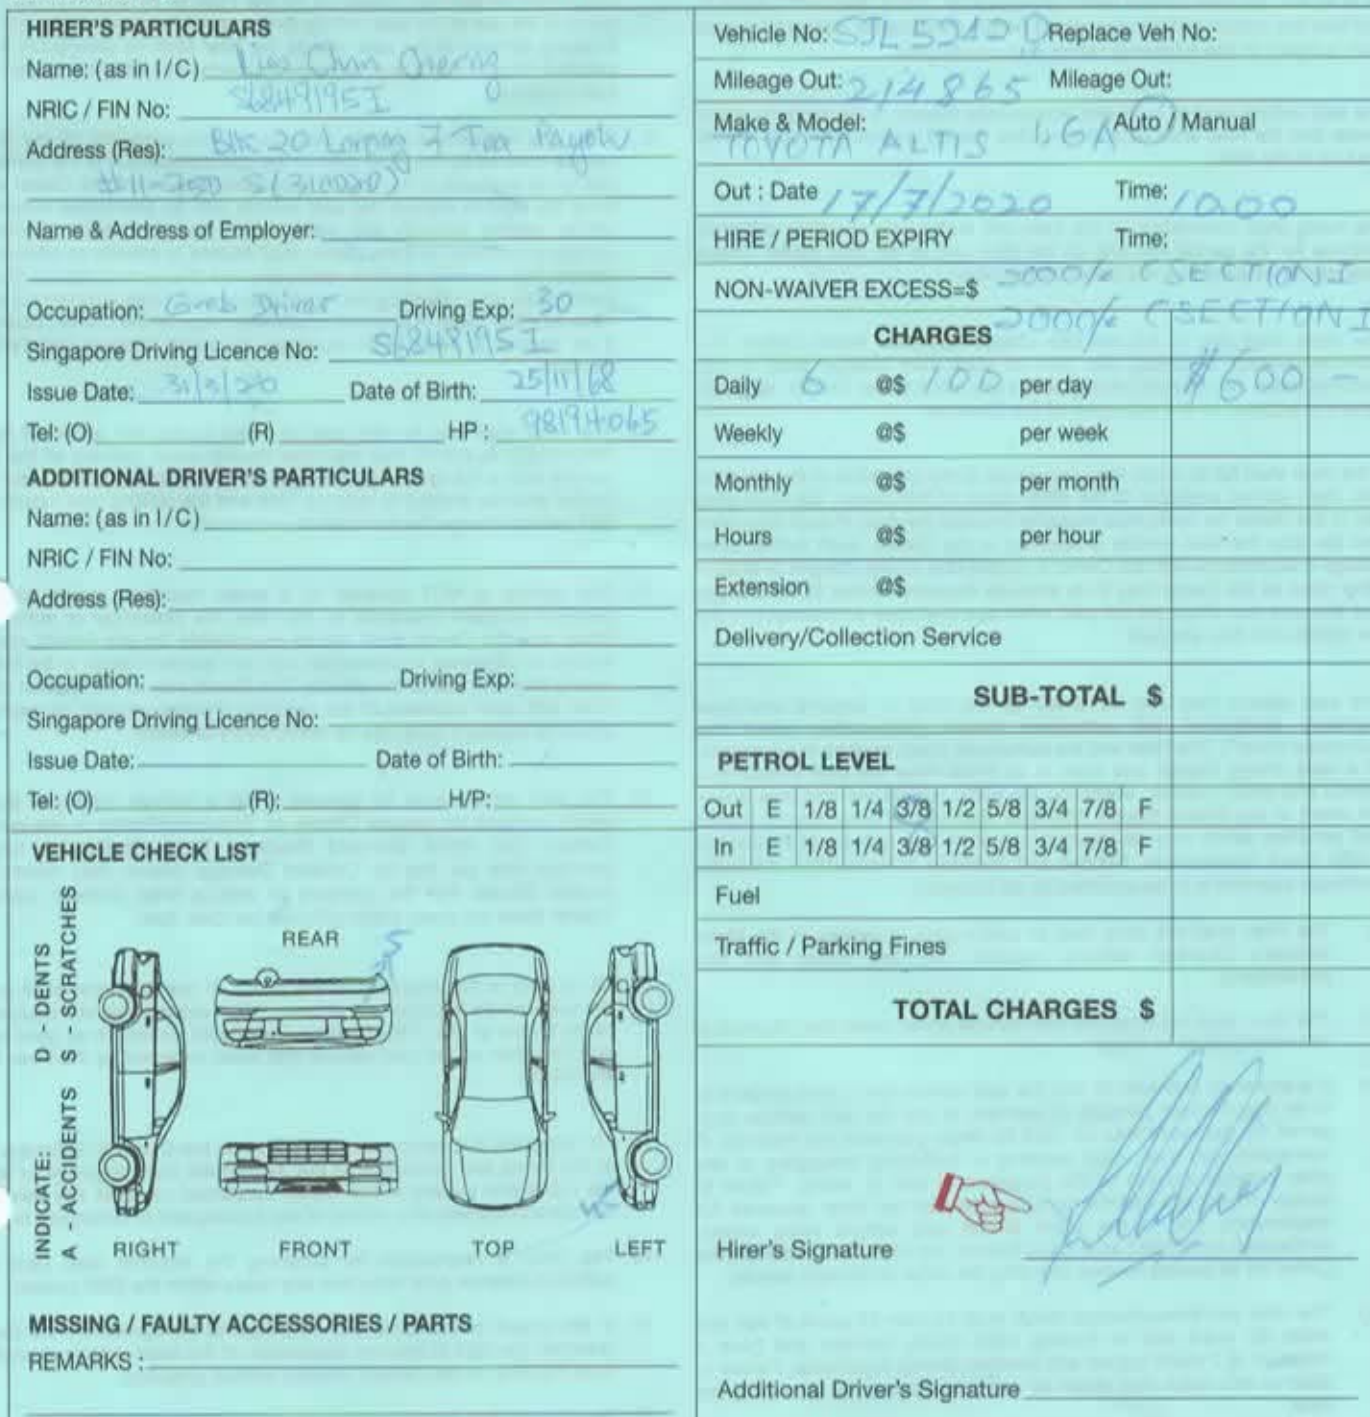 HIRER'S PARTICULARS
Name: (as in I/C) Chun
NRIC / FIN No: S6849195I
Address (Res): Blk 20 Lorong 7 Toa Payoh
#11-750 S(310020)
Name & Address of Employer:
Occupation: Grab Driver Driving Exp: 30
Singapore Driving Licence No: S6849195I
Issue Date: Date of Birth: 25/11/68
Tel: (O) (R) HP : 98194065
ADDITIONAL DRIVER'S PARTICULARS
Name: (as in I/C)
NRIC / FIN No:
Address (Res):
Occupation: Driving Exp:
Singapore Driving Licence No:
Issue Date: Date of Birth:
Tel: (O) (R): H/P:
VEHICLE CHECK LIST
INDICATE: D - DENTS
A - ACCIDENTS S - SCRATCHES
REAR
S
RIGHT FRONT TOP LEFT
MISSING / FAULTY ACCESSORIES / PARTS
REMARKS :
Vehicle No: Replace Veh No:
Mileage Out: 214865 Mileage Out:
Make & Model: Auto / Manual
TOYOTA ALTIS 1.6A
Out : Date 17/7/2020 Time:
HIRE / PERIOD EXPIRY Time:
NON-WAIVER EXCESS=$ (SECTION I
2000/- (SECTION I
CHARGES
Daily 6 @$ 100 per day $600 -
Weekly @$ per week
Monthly @$ per month
Hours @$ per hour
Extension @$
Delivery/Collection Service
SUB-TOTAL $
PETROL LEVEL
Out E 1/8 1/4 3/8 1/2 5/8 3/4 7/8 F
In E 1/8 1/4 3/8 1/2 5/8 3/4 7/8 F
Fuel
Traffic / Parking Fines
TOTAL CHARGES $
Hirer's Signature
Additional Driver's Signature